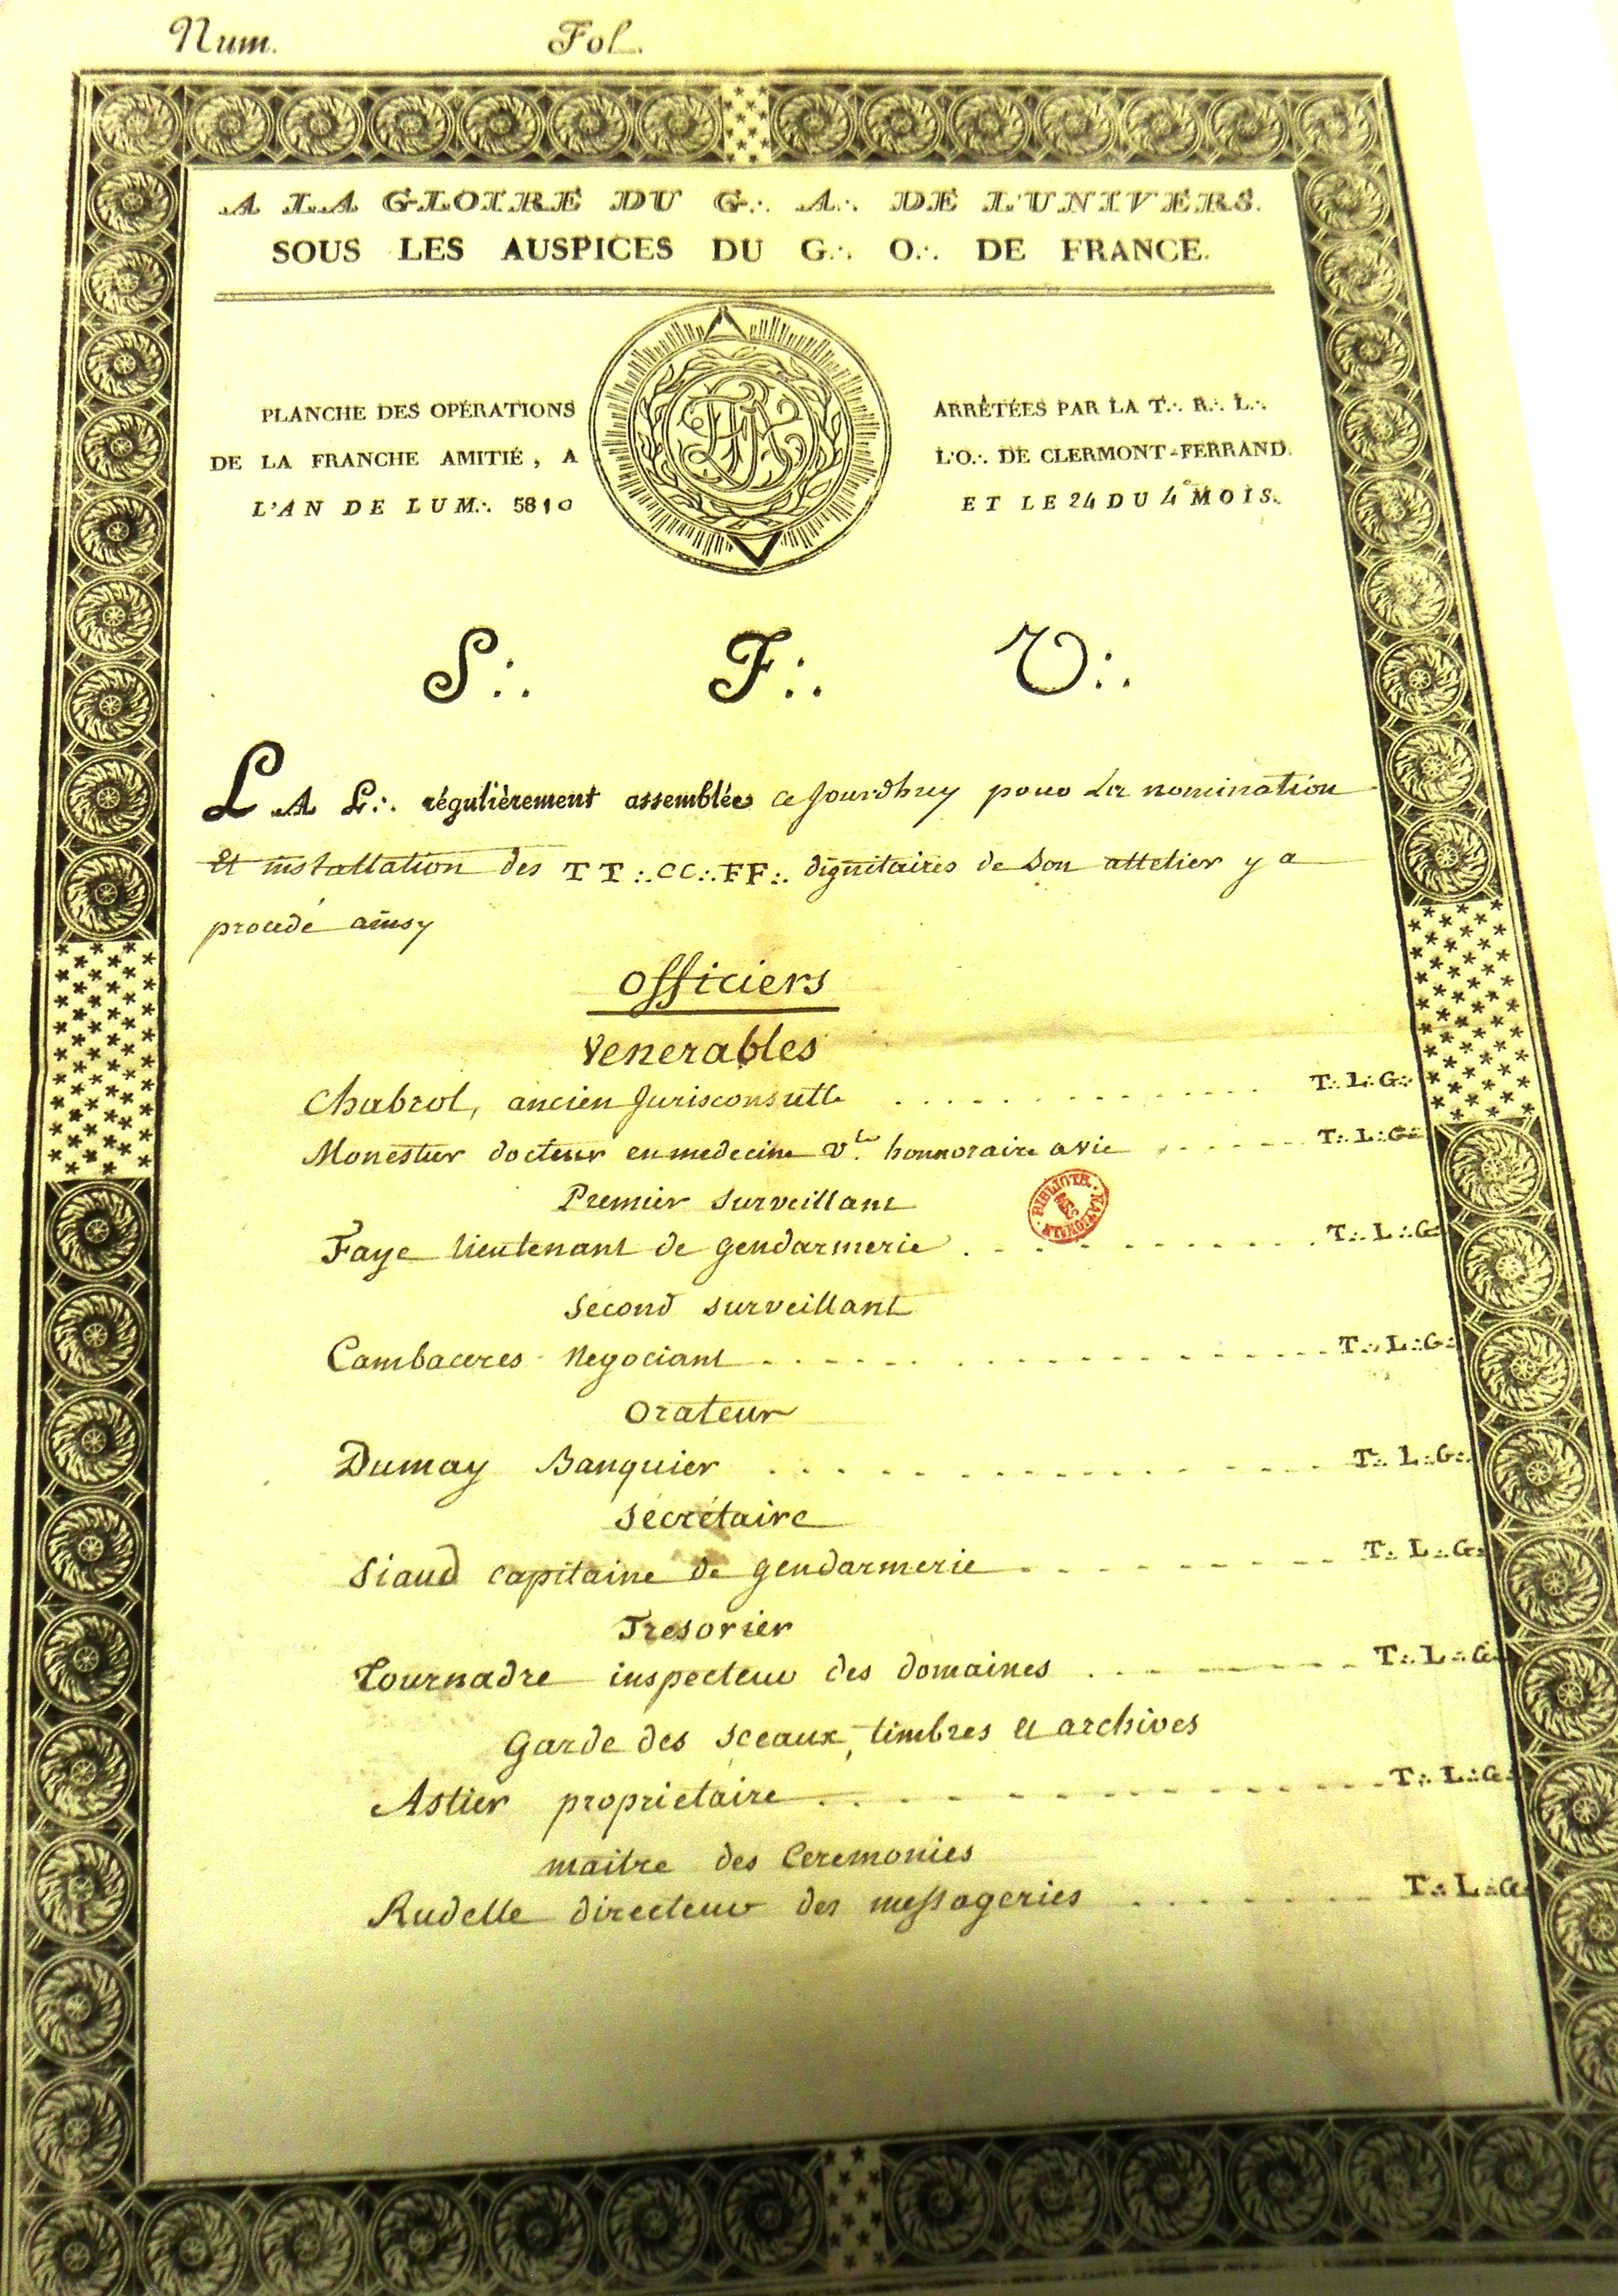 Num. Fol.
A LA GLOIRE DU G∴ A∴ DE L'UNIVERS.
SOUS LES AUSPICES DU G∴ O∴ DE FRANCE.
PLANCHE DES OPÉRATIONS ARRÊTÉES PAR LA T∴ R∴ L∴
DE LA FRANCHE AMITIÉ, A L'O∴ DE CLERMONT-FERRAND.
L'AN DE LUM∴ 5810 ET LE 24 DU 4e MOIS.
S∴ F∴ V∴
LA L∴ régulièrement assemblée ce jourdhuy pour La nomination
Et installation des TT∴CC∴FF∴ dignitaires de Son attelier y a
procédé ainsy
officiers
Venerables
Chabrol, ancien Jurisconsulte T∴L∴G∴
Monestier docteur en medecine Vle honnoraire a vie T∴L∴G∴
Premier Surveillant
BIBLIOTH. NATIONALE MSS
Faye lieutenant de gendarmerie T∴L∴G∴
Second surveillant
Cambaceres Negociant T∴L∴G∴
Orateur
Dumay Banquier T∴L∴G∴
Sécrétaire
Siaud capitaine de gendarmerie T∴L∴G∴
Tresorier
Tournadre inspecteur des domaines T∴L∴G∴
Garde des sceaux, timbres et archives
Astier proprietaire T∴L∴G∴
maitre des Ceremonies
Rudelle directeur des messageries T∴L∴G∴